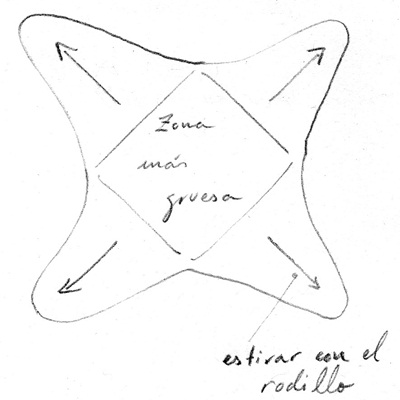 Zona
más
gruesa
estirar con el
rodillo